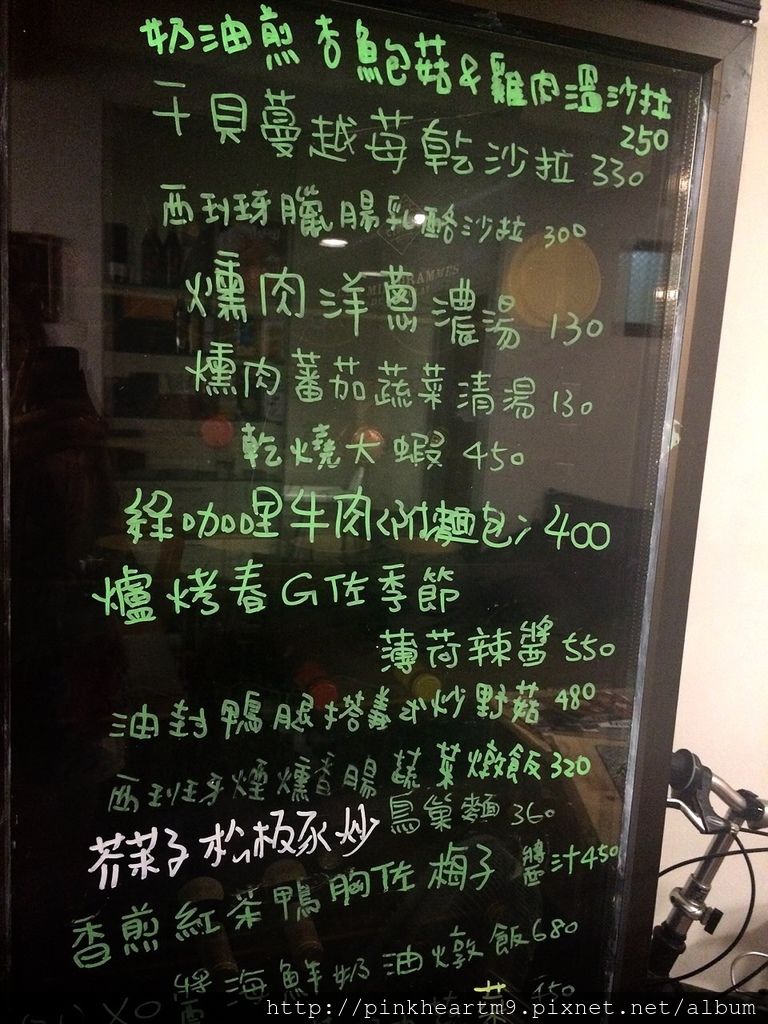 奶油煎杏鮑菇&雞肉溫沙拉
250
干貝蔓越莓乾沙拉 330
西班牙臘腸乳酪沙拉 300
燻肉洋蔥濃湯 130
燻肉蕃茄蔬菜清湯 130
乾燒大蝦 450
綠咖哩牛肉(附麵包) 400
爐烤春G佐季節
薄荷辣醬 550
油封鴨腿搭義式炒野菇 480
西班牙煙燻香腸蔬菜燉飯 320
芥茉子松板豕炒鳥巢麵 360
香煎紅茶鴨胸佐梅子醬汁 450
XO醬海鮮奶油燉飯 680
菜
http://pinkheartm9.pixnet.net/album